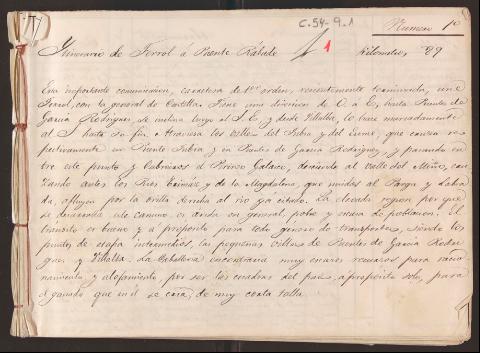 C.54-9.1
Numero 1º
Itinerario de Ferrol á Puente Rábade
1
Kilometros 89
Esta importante comunicacion, carretera de 1er orden, recientemente terminada, une
Ferrol, con la general de Castilla. Tiene una direccion de O. á E, hasta Puentes de
Garcia Rodriguez, se inclina luego al S.E, y desde Villalba, lo hace marcadamente
al S hasta su fin. Atraviesa los valles del Jubia y del Eume, que cruza res-
pectivamente en Puente Jubia y en Puentes de Garcia Rodriguez, y pasando en
tre este punto y Cabreiros el Pirineo Galaico, desciende al valle del Miño, cru
zando antes los Rios Trimáz y de la Magdalena, que unidos al Parga y Labra
da, afluyen por la orilla derecha al rio ya citado. La elevada region por que
se desarrolla este camino es árida en general, pobre y escasa de poblacion. El
transito es bueno y a proposito para todo genero de transportes, siendo los
puntos de etapa intermedios, las pequeñas villas de Puentes de Garcia Rodri
guez y Villalba. La Caballeria encontraria muy escasos recursos para racio
namiento, y alojamiento, por ser las cuadras del pais, apropósito solo, para
el ganado que en él se cria, de muy corta talla.